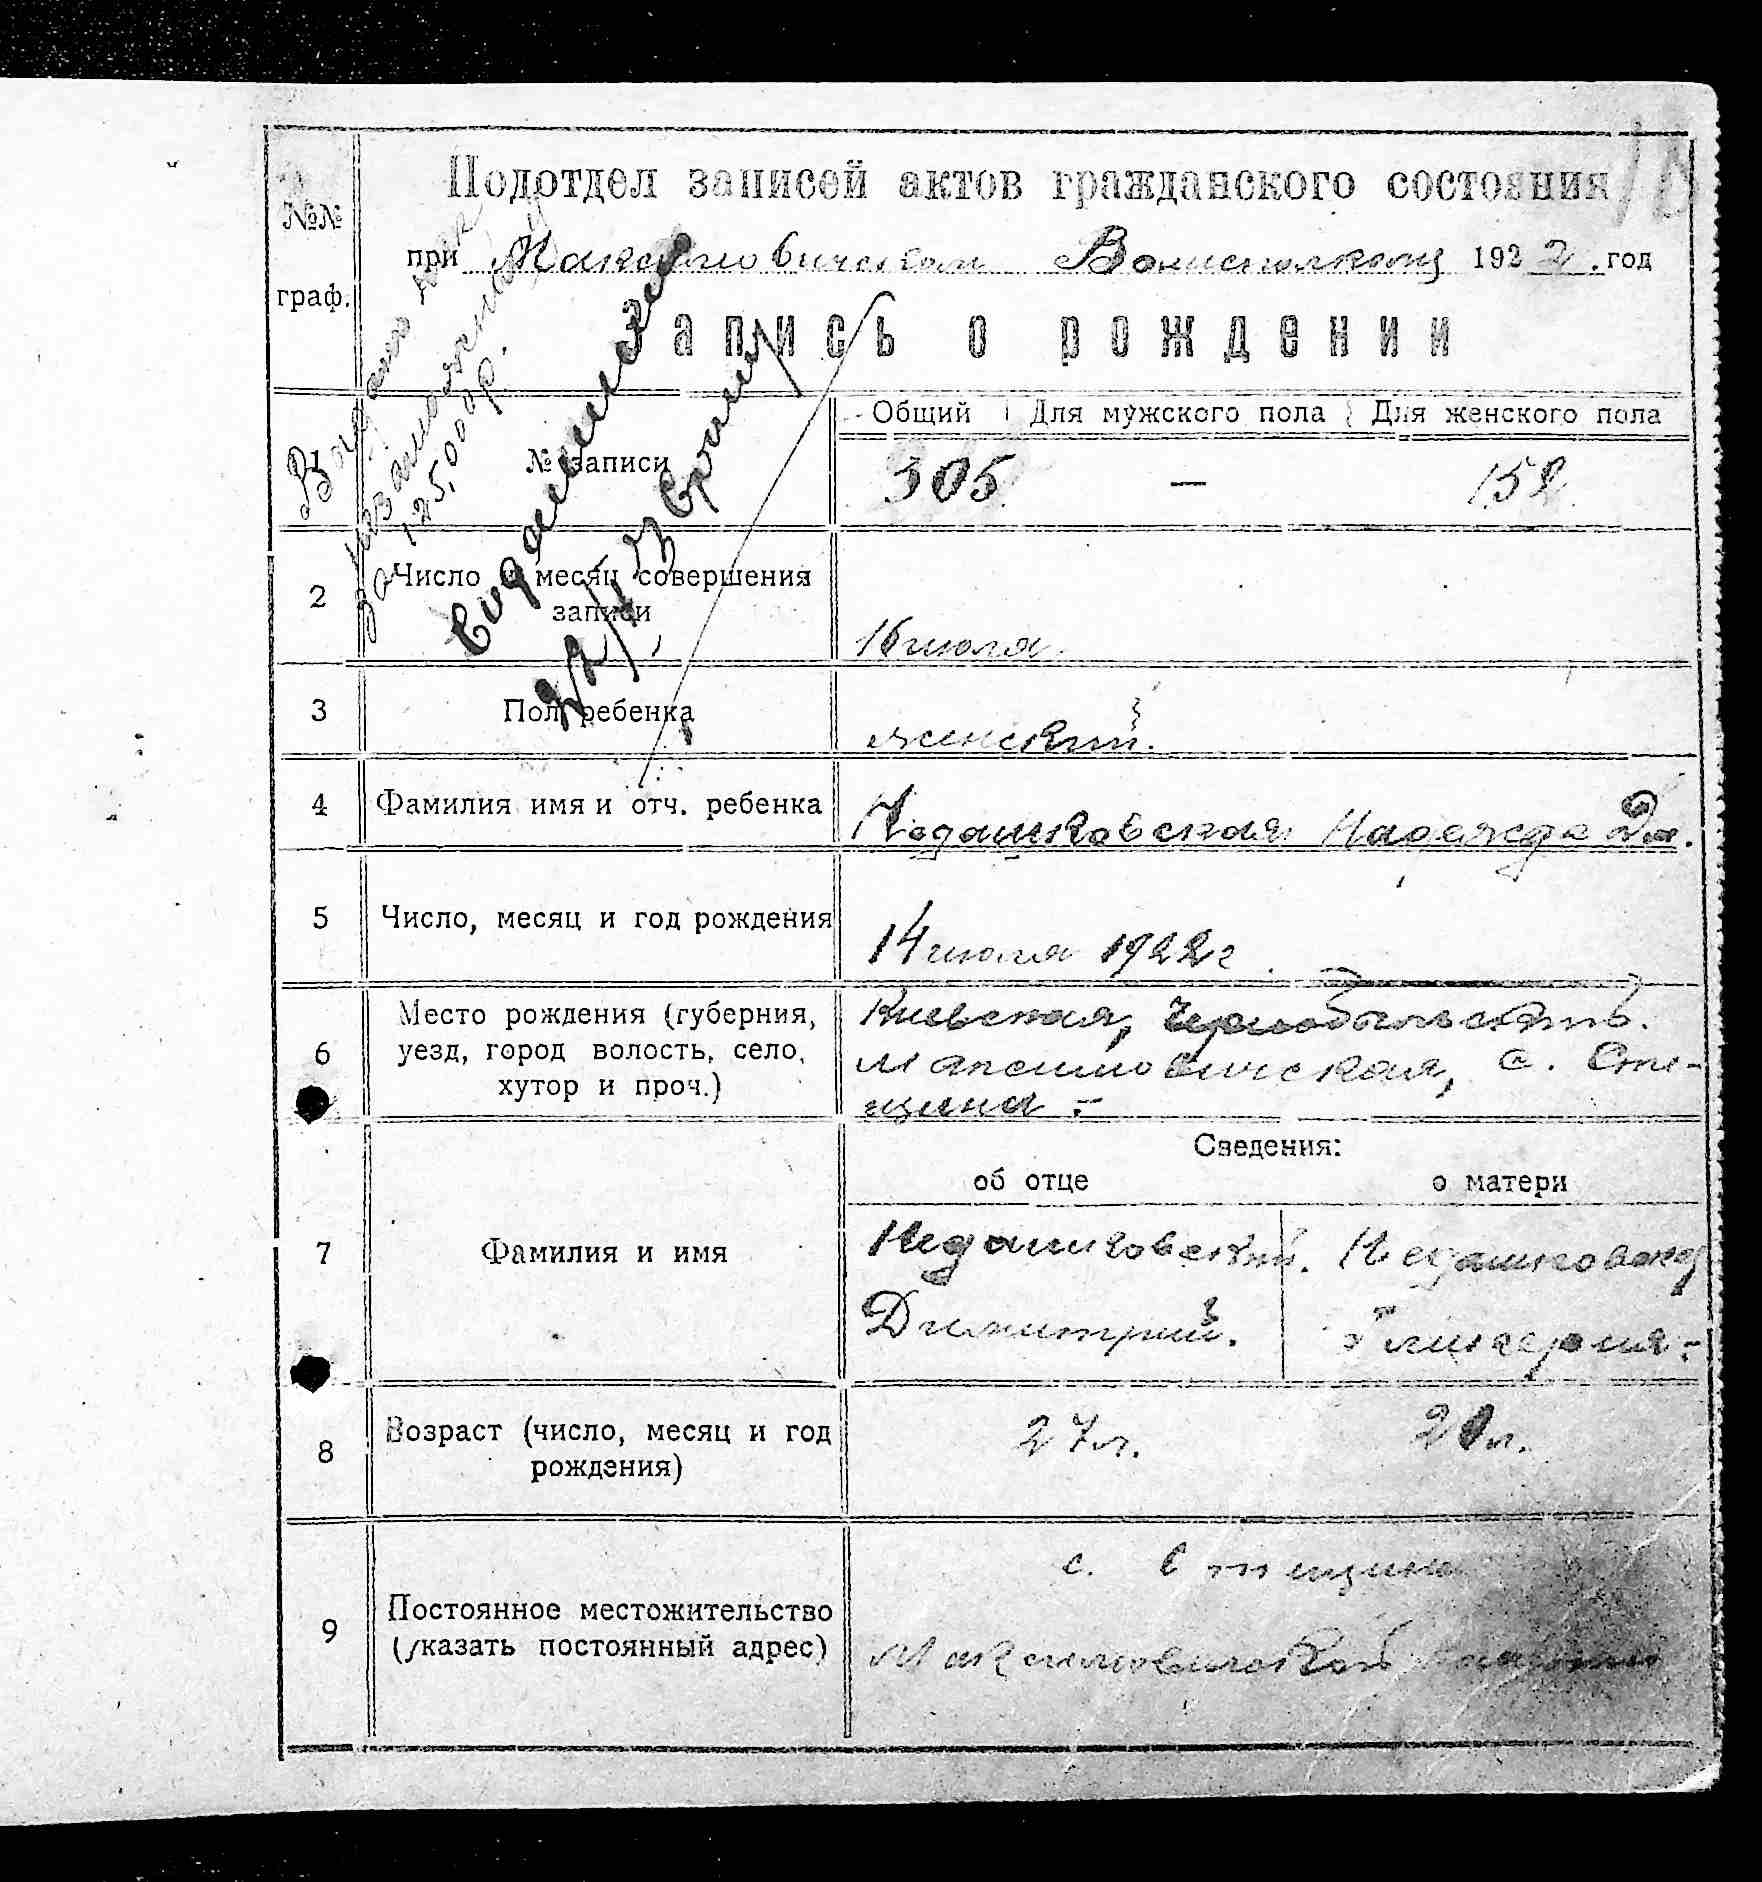 №№
граф.
Подотдел записей актов гражданского состояния
при Максимовичском Волисполкому 1922. год
Запись о рождении
1
№ записи
Общий
Для мужского пола
Для женского пола
305
—
152
2
Число и месяц совершения
записи
16 июля
3
Пол ребенка
женский.
4
Фамилия имя и отч. ребенка
Недашковская Надежда Дм.
5
Число, месяц и год рождения
14 июля 1922 г.
6
Место рождения (губерния,
уезд, город волость, село,
хутор и проч.)
Киевская, Чернобыльский.
Максимовичская, с. Сте-
щина -
Сведения:
об отце
о матери
7
Фамилия и имя
Недашковский.
Димитрий.
Недашковская
Гликерия -
8
Возраст (число, месяц и год
рождения)
27 л.
20 л.
9
Постоянное местожительство
(указать постоянный адрес)
с. Стещина
Максимовичской
Выдано
за
125,000 р.